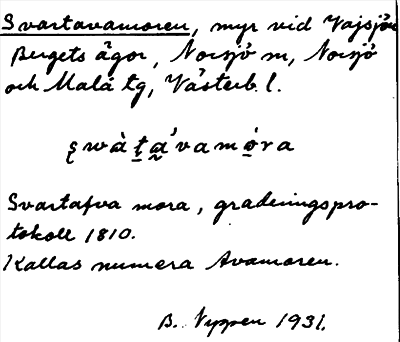 Svartavamoren, myr vid Vajsjön
Bergets ägor, Norsjö sn, Norsjö
och Malå tg, Västerb. l.
Svartafva mora, graderingspro-
tokoll 1810.
Kallas numera Avamoren.
B. Nyppen 1931.